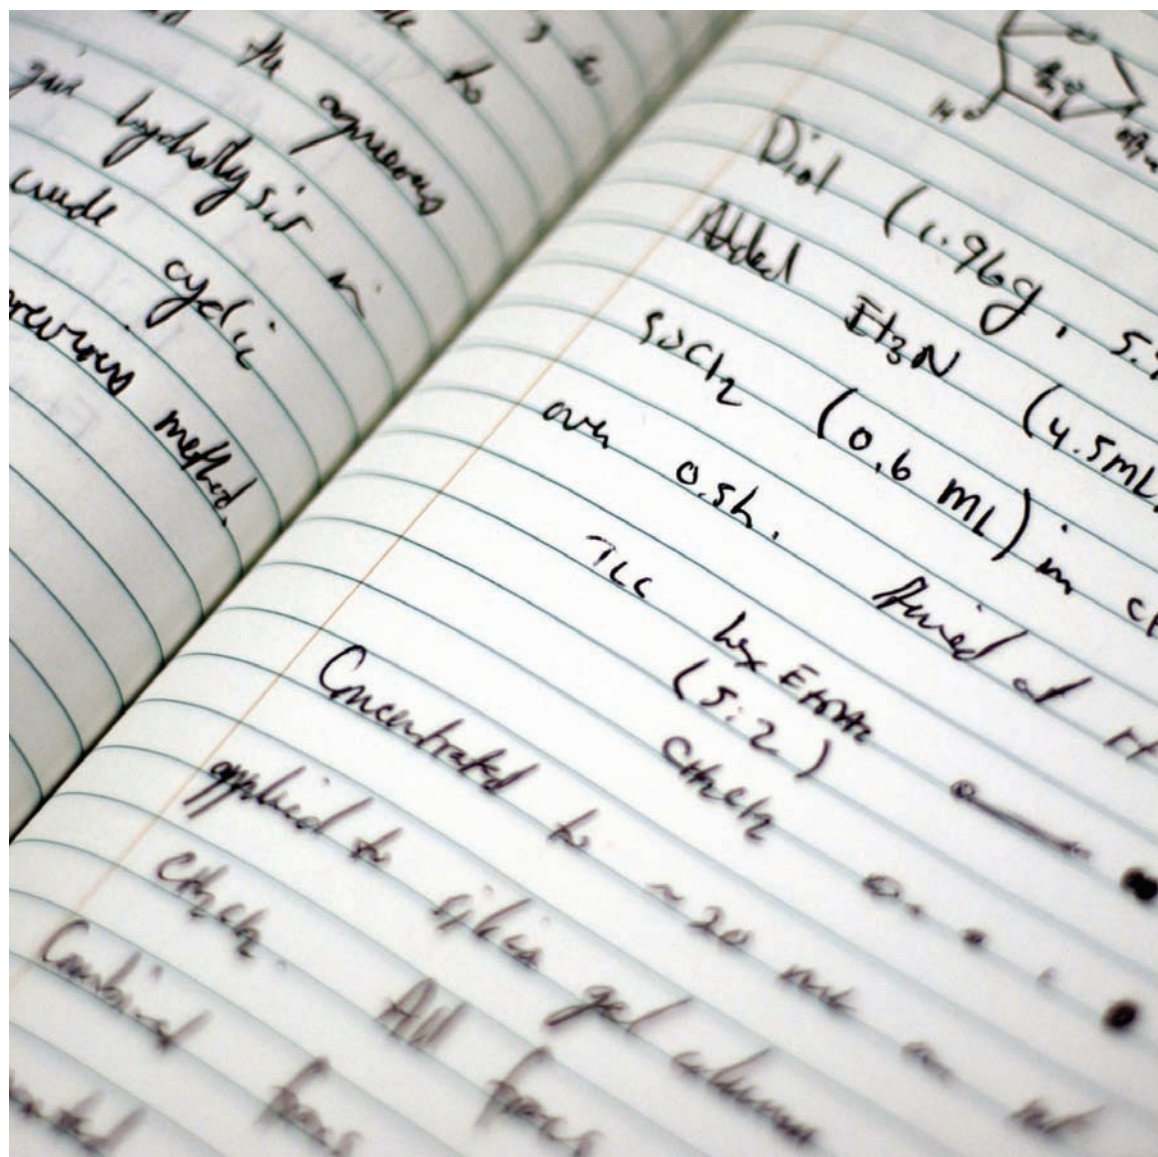 to
the aqueous
give hydrolysis
crude cyclic
method.
Diol (1.96g,
Added Et3N (4.5mL,
SOCl2 (0.6 mL) in
over 0.5h. Stirred at
TLC hex EtOAc
(5:2)
CH2Cl2
Concentrated to ~20 mL
applied to silica gel column
CH2Cl2. All fracs
Combined fracs